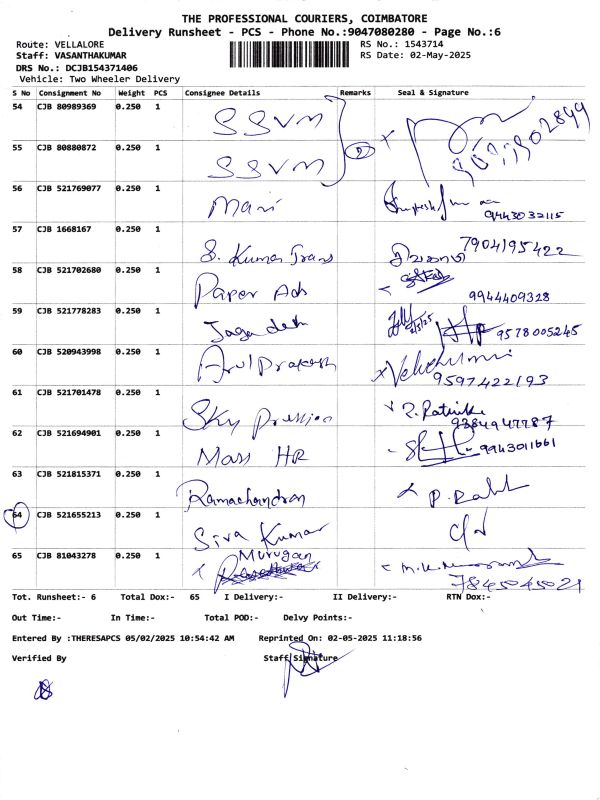 THE PROFESSIONAL COURIERS, COIMBATORE
Delivery Runsheet - PCS - Phone No.:9047080280 - Page No.:6
Route: VELLALORE RS No.: 1543714
Staff: VASANTHAKUMAR RS Date: 02-May-2025
DRS No.: DCJB154371406
Vehicle: Two Wheeler Delivery
S No Consignment No Weight PCS Consignee Details Remarks Seal & Signature
54 CJB 80989369 0.250 1 SSVM
55 CJB 80880872 0.250 1 SSVM
56 CJB 521769077 0.250 1 Mani 9443032115
57 CJB 1668167 0.250 1 S. Kumar Trans 7904195422
58 CJB 521702680 0.250 1 Paper Ads 9944409328
59 CJB 521778283 0.250 1 Jagadesh 9578005245
60 CJB 520943998 0.250 1 Arul Prakash 9597422193
61 CJB 521701478 0.250 1 Sky
62 CJB 521694901 0.250 1 Mass HR 9943011661
63 CJB 521815371 0.250 1 Ramachandran
64 CJB 521655213 0.250 1 Siva Kumar
65 CJB 81043278 0.250 1 Murugan 7845045021
Tot. Runsheet:- 6 Total Dox:- 65 I Delivery:- II Delivery:- RTN Dox:-
Out Time:- In Time:- Total POD:- Delvy Points:-
Entered By :THERESAPCS 05/02/2025 10:54:42 AM Reprinted On: 02-05-2025 11:18:56
Verified By Staff Signature